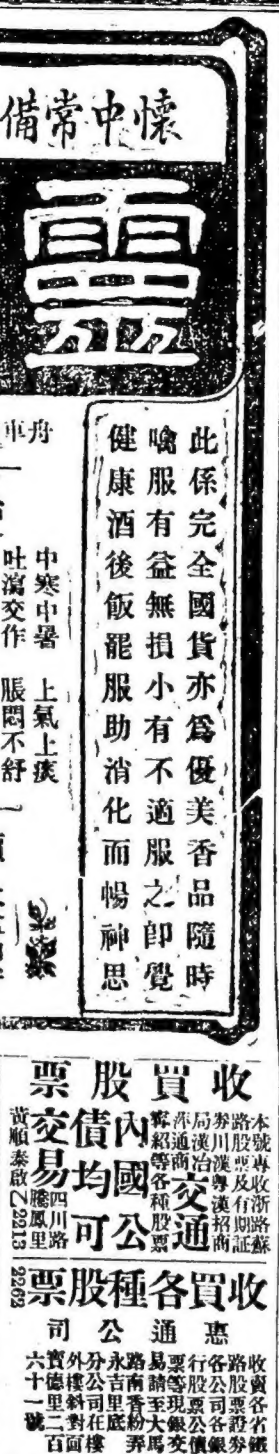 懷中常備
靈
此係完全國貨亦爲優美香品隨時
噙服有益無損小有不適服之卽覺
健康酒後飯罷服助消化而暢神思
舟車
中寒中暑　上氣上痰
吐瀉交作　脹悶不舒
收買股票
本號專收浙路蘇
路股票及有期証
券川漢粵漢招商
局漢冶
萍通商交通
寗紹等各種股票
內國公
債均可
交易四川路
騰鳳里
黃順泰啟乙2213
2262
收買各種股票
惠通公司
收買各省鐵
路股票證券
各公司各銀
行股票公債
票等現銀交
易請至大馬
路南香粉弄
永吉里底
分公司在樓
外樓斜對面
寳德里二百
六十一號